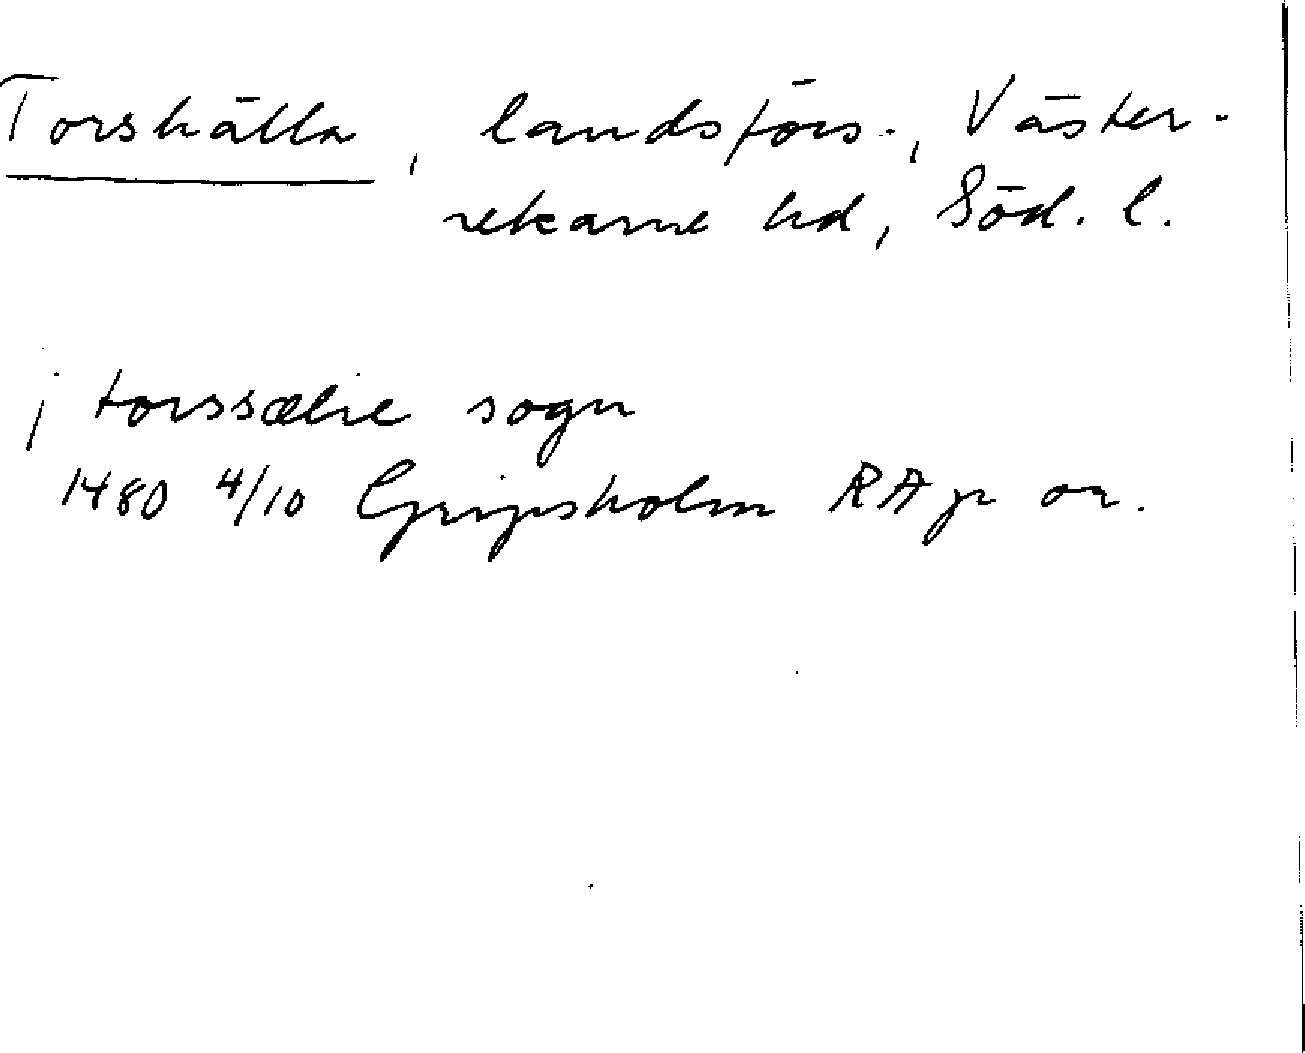 Torshälla, landsförs., Väster-
rekarne hd, Söd. l.
j torssælie sogn
1480 4/10 Gripsholm RAp or.